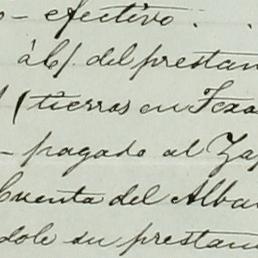 - efectivo.
á l/ del prestam
(tierras en Texa
- pagado al Zap
Cuenta del Alba
dole su prestam